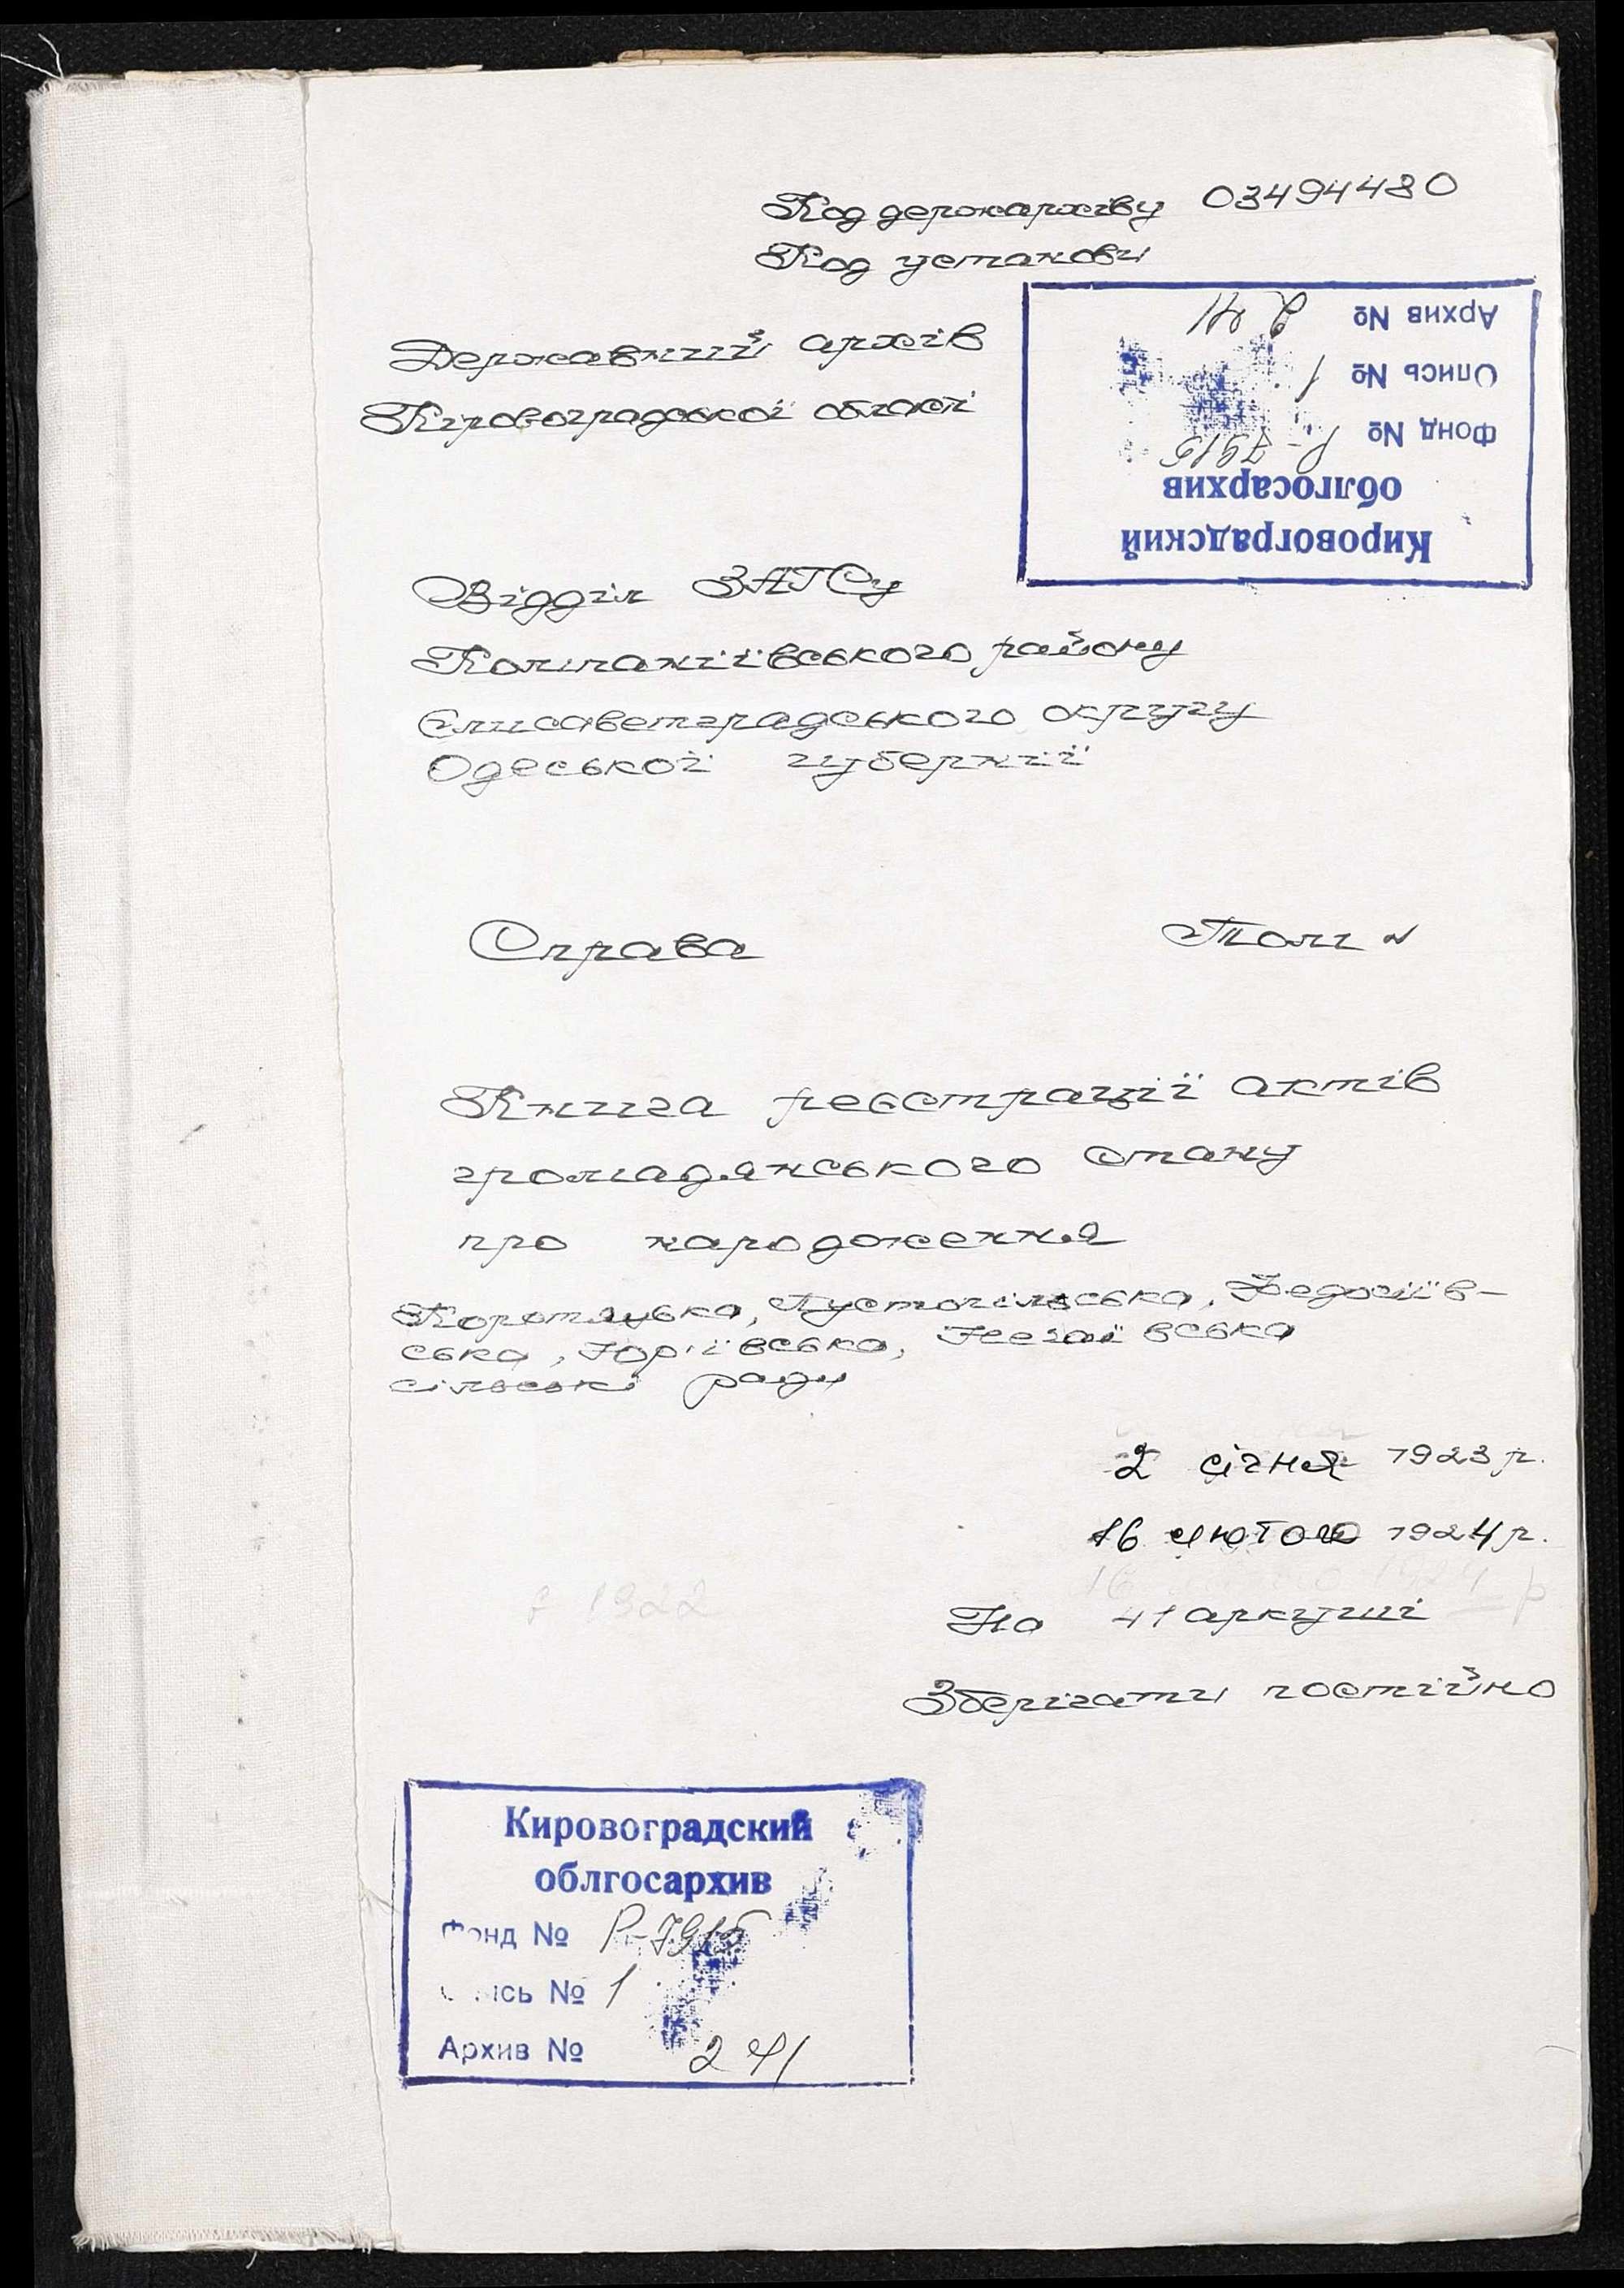 Код держархіву 03494480
Код установи
Кировоградский
облгосархив
Фонд № Р-7915
Опись № 1
Архив № 241
Державний архів
Кіровоградської області
Відділ ЗАГСу
Компаніївського району
Єлисаветградського округу
Одеської губернії
Справа Том №
Книга реєстрації актів
громадянського стану
про народження
Коротяцька, Пустогільська, Федосіїв-
ська, Юр'ївська, Нечаївська
сільські ради
2 січня 1923 р.
16 лютого 1924 р.
1922
На 41 аркуші
Зберігати постійно
Кировоградский
облгосархив
Фонд № Р-7915
Опись № 1
Архив № 241